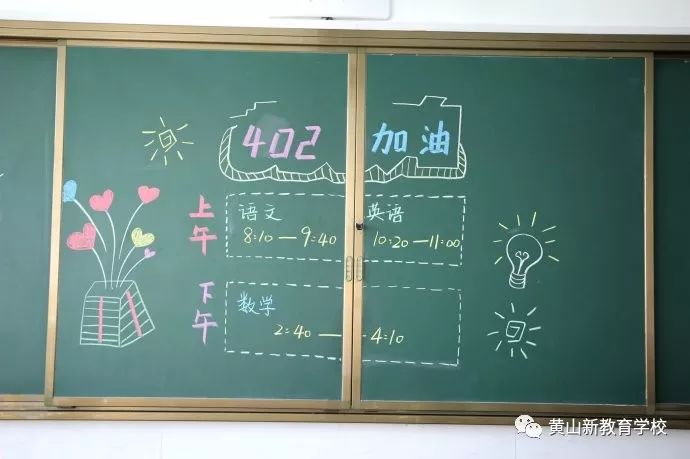 402 加油
上午
语文 英语
8:10—9:40 10:20—11:00
下午
数学
2:40—4:10
黄山新教育学校